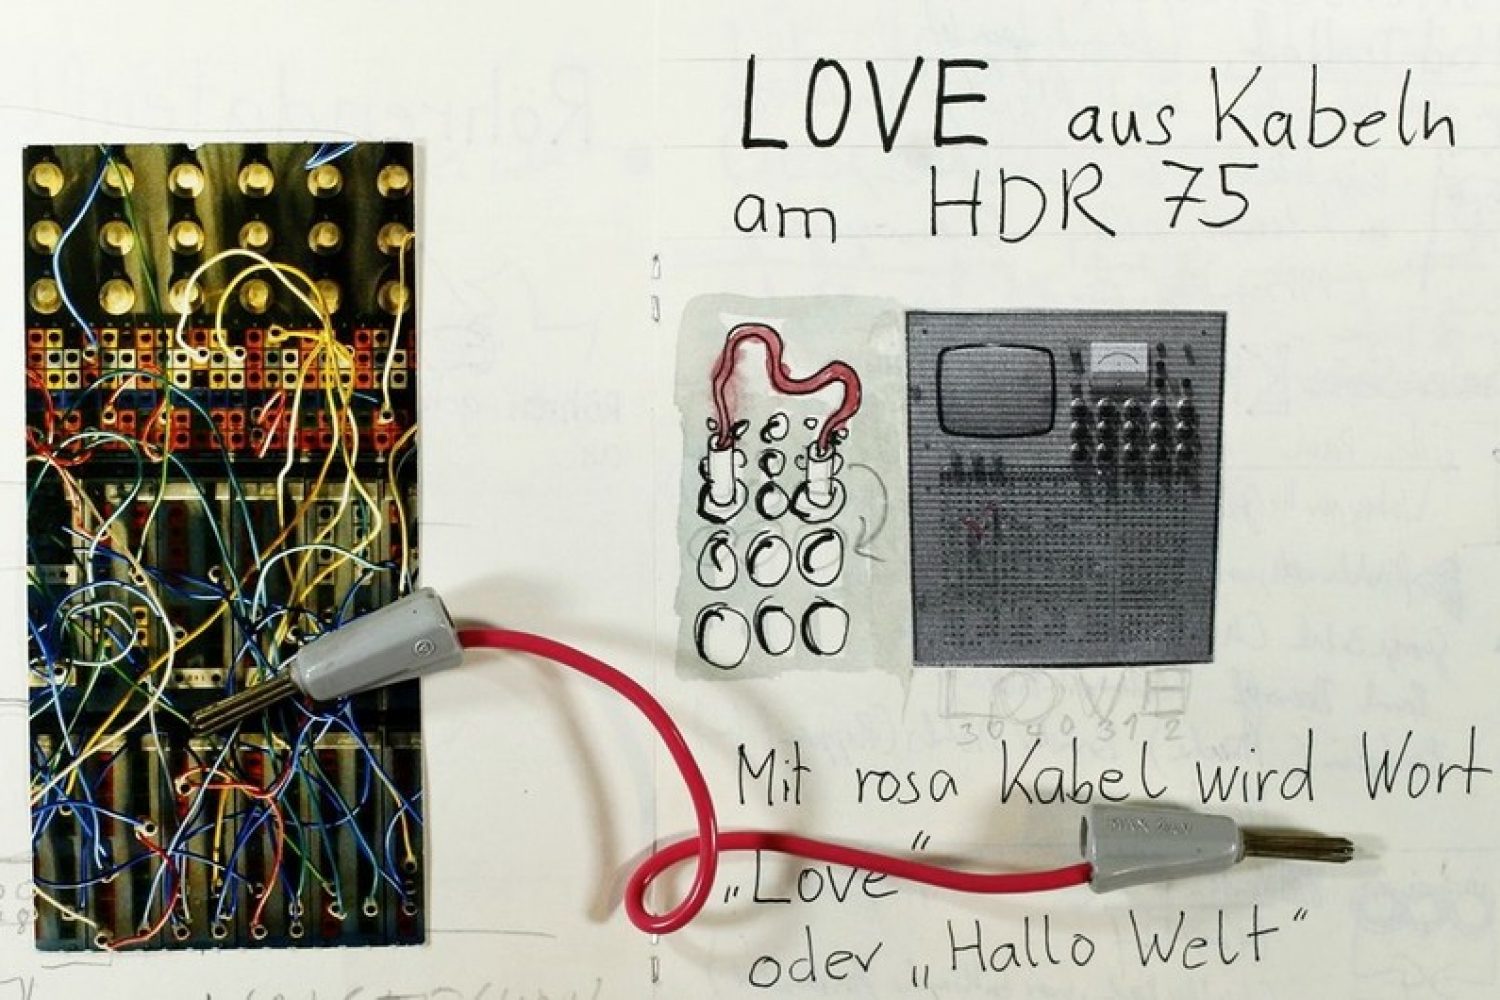 LOVE aus Kabeln
am HDR 75
LOVE
30 40 31 2
Mit rosa Kabel wird Wort
„Love“
oder „Hallo Welt“